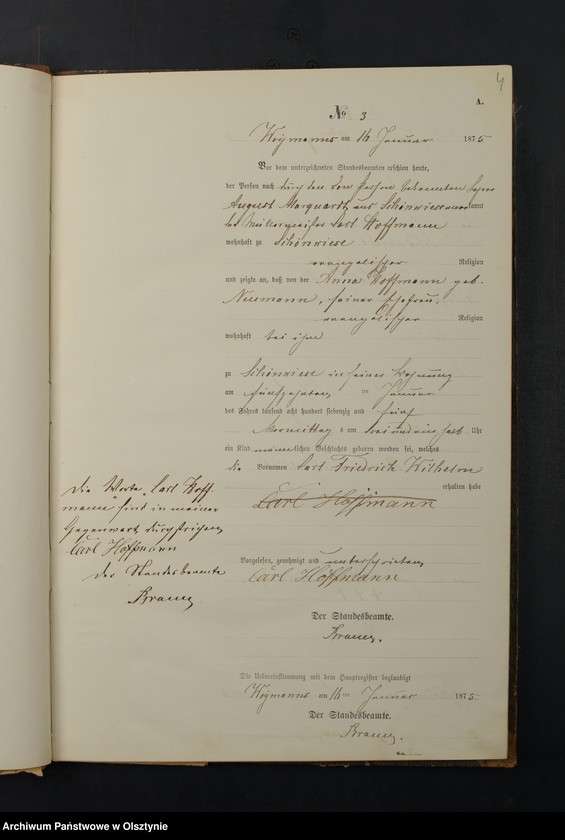 4
A.
No 3
Woymanns am 16 Januar 1875
Vor dem unterzeichneten Standesbeamten erschien heute,
der Person nach durch den von Person bekannten
August Marquardt aus Schönwiese anerkannt
der Müllermeister Carl Hoffmann
wohnhaft zu Schönwiese
evangelischer Religion
und zeigte an, daß von der Anna Hoffmann geb.
Neumann, seiner Ehefrau,
evangelischer Religion
wohnhaft bei ihm
zu Schönwiese in seiner Wohnung
am fünfzehnten Januar
des Jahres tausend acht hundert siebenzig und fünf
Vormittags um drei und ein halb Uhr
ein Kind männlichen Geschlechts geboren worden sei, welches
die Vornamen Carl Friedrich Wilhelm
erhalten habe
Carl Hoffmann
Die Worte "Carl Hoff-
mann" sind in meiner
Gegenwart durchstrichen
Carl Hoffmann
Der Standesbeamte
Vorgelesen, genehmigt und unterschrieben
Carl Hoffmann
Der Standesbeamte.
Die Uebereinstimmung mit dem Hauptregister beglaubigt
Woymanns am 16ten Januar 1875
Der Standesbeamte.
Archiwum Państwowe w Olsztynie